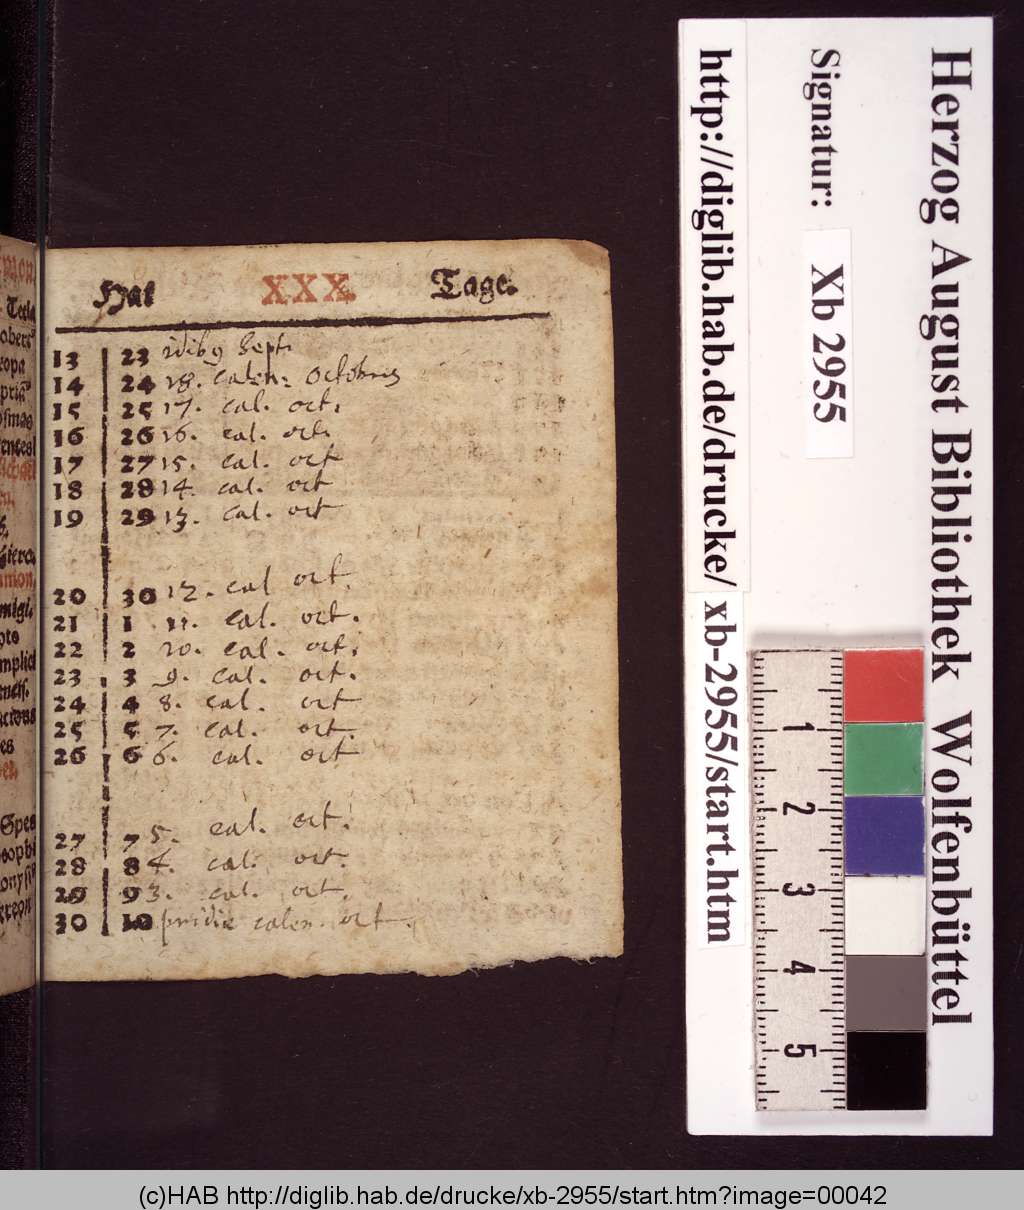 Hat XXX. Tage.
13 23 idib9 Sept.
14 24 18. calen: Octobris
15 25 17. cal. oct.
16 26 16. cal. oct.
17 27 15. cal. oct
18 28 14. cal. oct
19 29 13. cal. oct
20 30 12. cal oct.
21 1 11. cal. oct.
22 2 10. cal. oct.
23 3 9. cal. oct.
24 4 8. cal. oct
25 5 7. cal. oct.
26 6 6. cal. oct
27 7 5. cal. oct.
28 8 4. cal. oct.
29 9 3. cal. oct.
30 10 pridie calen. oct.
Herzog August Bibliothek Wolfenbüttel
Signatur: Xb 2955
http://diglib.hab.de/drucke/xb-2955/start.htm
1
2
3
4
5
(c)HAB http://diglib.hab.de/drucke/xb-2955/start.htm?image=00042